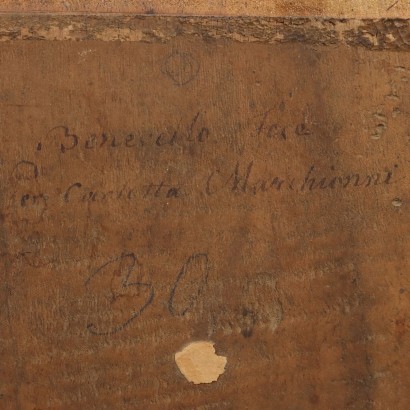 Benevello Fece
per Carlotta Marchionni